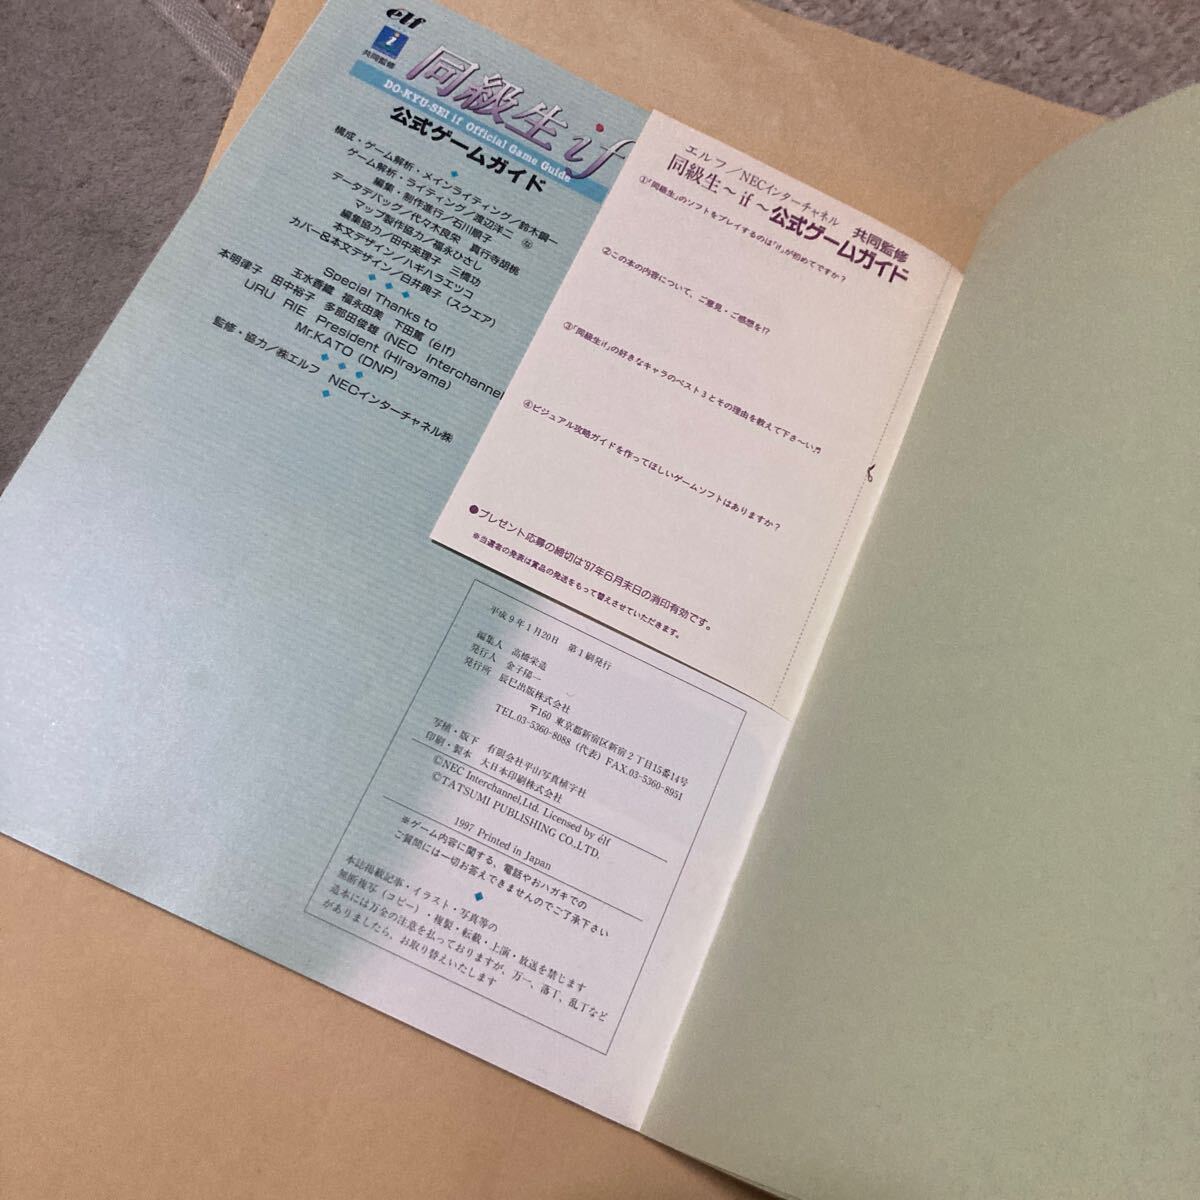 elf
i
共同監修
同級生if
DO-KYU-SEI if Official Game Guide
公式ゲームガイド
構成・ゲーム解析・メインライティング／鈴木鋼一
ゲーム解析・ライティング／渡辺洋二 真行寺胡桃
編集・制作進行／石川順子
データデバッグ／代々木良栄
マップ製作協力／福永ひさし
編集協力／田中英理子 三橋功
本文デザイン／ハギハラエツコ
カバー&本文デザイン／臼井典子（スクエア）
Special Thanks to
玉水香織 福永由美 下田篤（élf）
本明律子 田中裕子 多部田俊雄（NEC Interchannel
URU RIE President（Hirayama）
Mr.KATO（DNP）
監修・協力／㈱エルフ NECインターチャネル㈱
エルフ／NECインターチャネル 共同監修
同級生～if～公式ゲームガイド
①「同級生」のソフトをプレイするのは「if」が初めてですか？
②この本の内容について、ご意見・ご感想を!?
③「同級生if」の好きなキャラのベスト3とその理由を教えて下さ～い♬
④ビジュアル攻略ガイドを作ってほしいゲームソフトはありますか？
●プレゼント応募の締切は'97年6月末日の消印有効です。
※当選者の発表は賞品の発送をもって替えさせていただきます。
平成9年1月20日 第1刷発行
編集人 高橋栄造
発行人 金子陽一
発行所 辰巳出版株式会社
〒160 東京都新宿区新宿2丁目15番14号
TEL.03-5360-8088（代表）FAX.03-5360-8951
写植・版下 有限会社平山写真植字社
印刷・製本 大日本印刷株式会社
©NEC Interchannel,Ltd. Licensed by élf
©TATSUMI PUBLISHING CO.,LTD.
1997 Printed in Japan
※ゲーム内容に関する、電話やおハガキでの
ご質問には一切お答えできませんのでご了承下さい
本誌掲載記事・イラスト・写真等の
無断複写（コピー）・複製・転載・上演・放送を禁じます
造本には万全の注意を払っておりますが、万一、落丁、乱丁など
がありましたら、お取り替えいたします